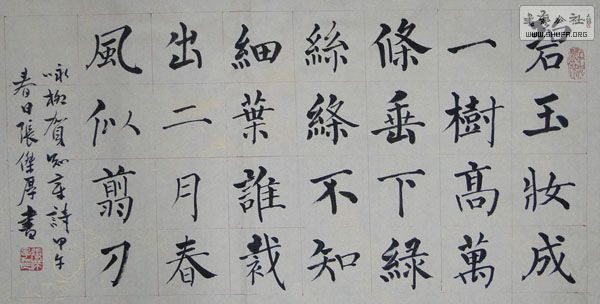 碧玉妝成
一樹高萬
條垂下綠
絲絛不知
細葉誰裁
出二月春
風似翦刀
咏柳賀知章詩甲午
春日張傑厚書
書法公社
WWW.SHUFA.ORG